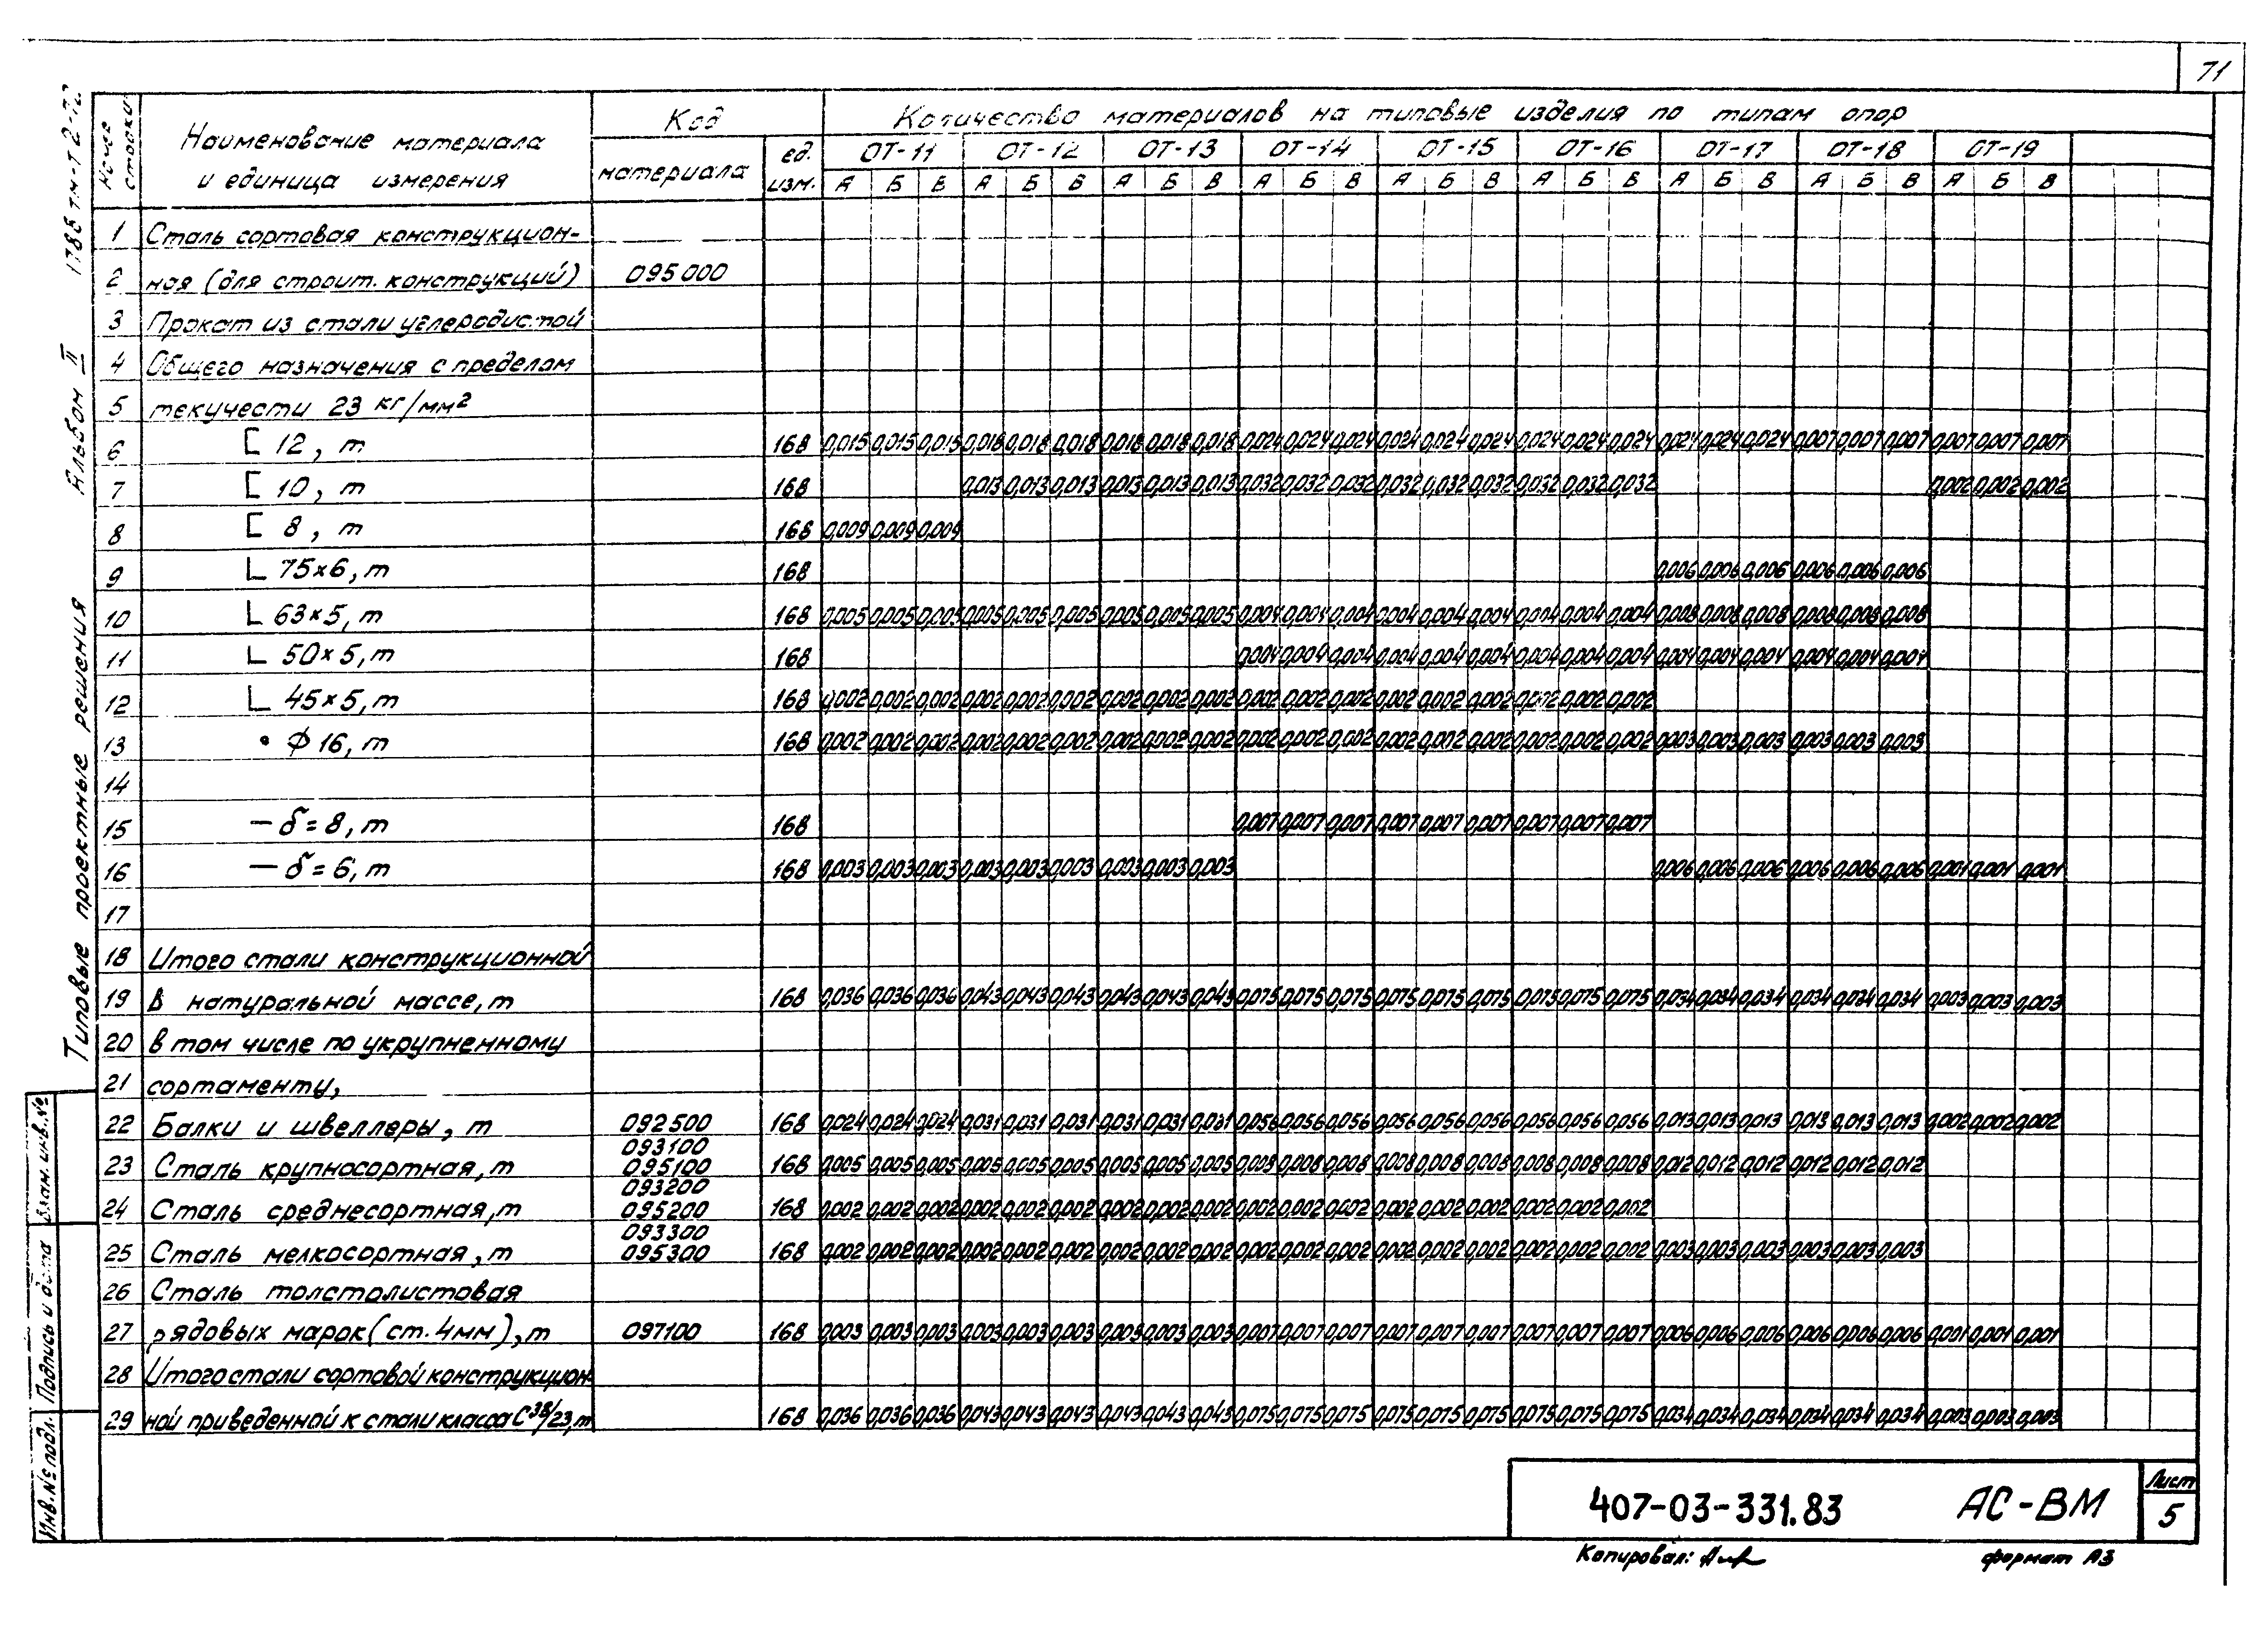 71
Альбом II
Типовые проектные решения
Взам. инв. №
Подпись и дата
Инв. № подл.
Наименование материала и единица измерения
Код
материала
ед. изм.
Количество материалов на типовые изделия по типам опор
ОТ-11 ОТ-12 ОТ-13 ОТ-14 ОТ-15 ОТ-16 ОТ-17 ОТ-18 ОТ-19
А Б В А Б В А Б В А Б В А Б В А Б В А Б В А Б В А Б В
1 Сталь сортовая конструкцион-
2 ная (для строит. конструкций) 095000
3 Прокат из стали углеродистой
4 Общего назначения с пределом
5 текучести 23 кг/мм²
6 [ 12, т 168 0,015 0,015 0,015 0,018 0,018 0,018 0,018 0,018 0,018 0,024 0,024 0,024 0,024 0,024 0,024 0,024 0,024 0,024 0,024 0,024 0,024 0,007 0,007 0,007 0,007 0,007 0,007
7 [ 10, т 168 0,013 0,013 0,013 0,013 0,013 0,013 0,032 0,032 0,032 0,032 0,032 0,032 0,032 0,032 0,032 0,002 0,002 0,002
8 [ 8, т 168 0,009 0,009 0,009
9 L 75×6, т 168 0,006 0,006 0,006 0,006 0,006 0,006
10 L 63×5, т 168 0,005 0,005 0,005 0,005 0,005 0,005 0,005 0,005 0,005 0,004 0,004 0,004 0,004 0,004 0,004 0,004 0,004 0,004 0,008 0,008 0,008 0,008 0,008 0,008
11 L 50×5, т 168 0,004 0,004 0,004 0,004 0,004 0,004 0,004 0,004 0,004 0,004 0,004 0,004 0,004 0,004 0,004
12 L 45×5, т 168 0,002 0,002 0,002 0,002 0,002 0,002 0,002 0,002 0,002 0,002 0,002 0,002 0,002 0,002 0,002 0,002 0,002 0,002
13 • ф 16, т 168 0,002 0,002 0,002 0,002 0,002 0,002 0,002 0,002 0,002 0,002 0,002 0,002 0,002 0,002 0,002 0,002 0,002 0,002 0,003 0,003 0,003 0,003 0,003 0,003
14
15 — δ = 8, т 168 0,007 0,007 0,007 0,007 0,007 0,007 0,007 0,007 0,007
16 — δ = 6, т 168 0,003 0,003 0,003 0,003 0,003 0,003 0,003 0,003 0,003 0,006 0,006 0,006 0,006 0,006 0,006 0,001 0,001 0,001
17
18 Итого стали конструкционной
19 В натуральной массе, т 168 0,036 0,036 0,036 0,043 0,043 0,043 0,043 0,043 0,043 0,075 0,075 0,075 0,075 0,075 0,075 0,075 0,075 0,075 0,034 0,034 0,034 0,034 0,034 0,034 0,003 0,003 0,003
20 в том числе по укрупненному
21 сортаменту,
22 Балки и швеллеры, т 092500 168 0,024 0,024 0,024 0,031 0,031 0,031 0,031 0,031 0,031 0,056 0,056 0,056 0,056 0,056 0,056 0,056 0,056 0,056 0,013 0,013 0,013 0,013 0,013 0,013 0,002 0,002 0,002
093100
23 Сталь крупносортная, т 095100 168 0,005 0,005 0,005 0,005 0,005 0,005 0,005 0,005 0,005 0,008 0,008 0,008 0,008 0,008 0,008 0,008 0,008 0,008 0,012 0,012 0,012 0,012 0,012 0,012
093200
24 Сталь среднесортная, т 095200 168 0,002 0,002 0,002 0,002 0,002 0,002 0,002 0,002 0,002 0,002 0,002 0,002 0,002 0,002 0,002 0,002 0,002 0,002
093300
25 Сталь мелкосортная, т 095300 168 0,002 0,002 0,002 0,002 0,002 0,002 0,002 0,002 0,002 0,002 0,002 0,002 0,002 0,002 0,002 0,002 0,002 0,002 0,003 0,003 0,003 0,003 0,003 0,003
26 Сталь толстолистовая
27 рядовых марок (ст. 4мм), т 097100 168 0,003 0,003 0,003 0,003 0,003 0,003 0,003 0,003 0,003 0,007 0,007 0,007 0,007 0,007 0,007 0,007 0,007 0,007 0,006 0,006 0,006 0,006 0,006 0,006 0,001 0,001 0,001
28 Итого стали сортовой конструкцион-
29 ной приведенной к стали класса С38/23, т 168 0,036 0,036 0,036 0,043 0,043 0,043 0,043 0,043 0,043 0,075 0,075 0,075 0,075 0,075 0,075 0,075 0,075 0,075 0,034 0,034 0,034 0,034 0,034 0,034 0,003 0,003 0,003
407-03-331.83 АС-ВМ
Лист
5
Копировал:
формат А3